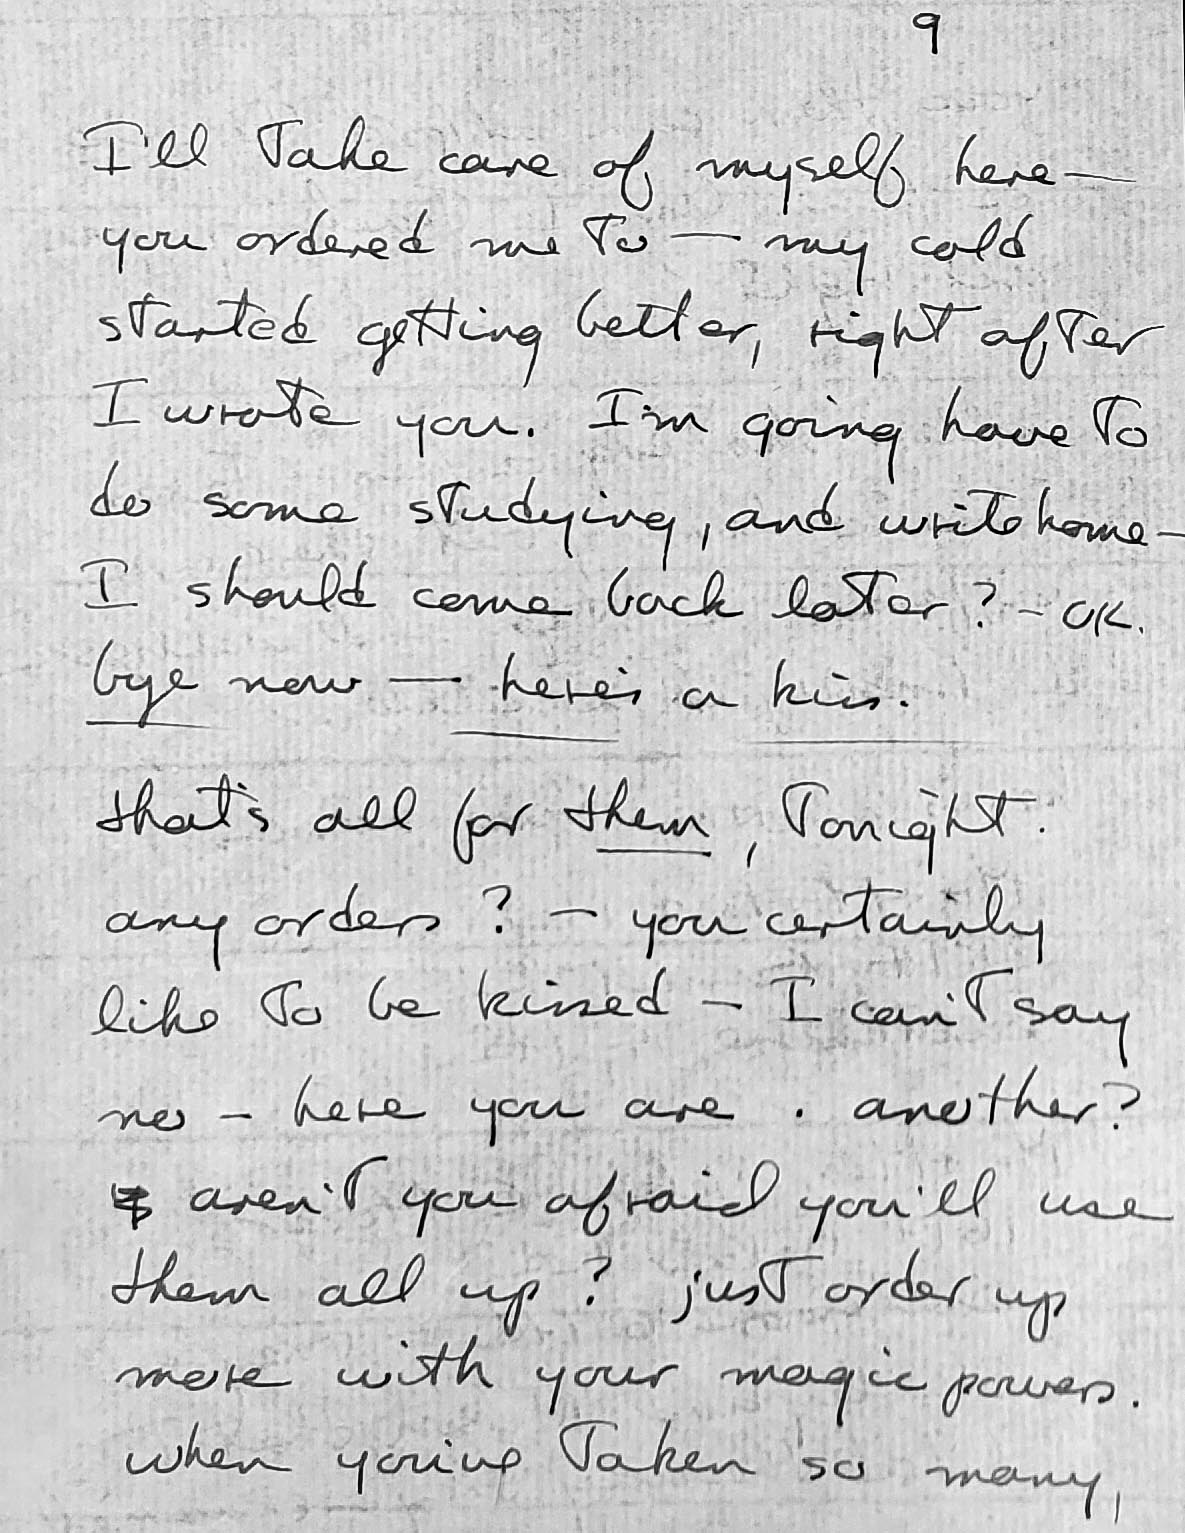 9
I'll Take care of myself here —
you ordered me To — my cold
started getting better, right after
I wrote you. I'm going have To
do some studying, and write home —
I should come back later? - OK.
bye now — here's a kiss.
that's all for them, Tonight.
any orders? - you certainly
like To be kissed - I can't say
no - here you are . another?
aren't you afraid you'll use
them all up? just order up
more with your magic powers.
when you've Taken so many,